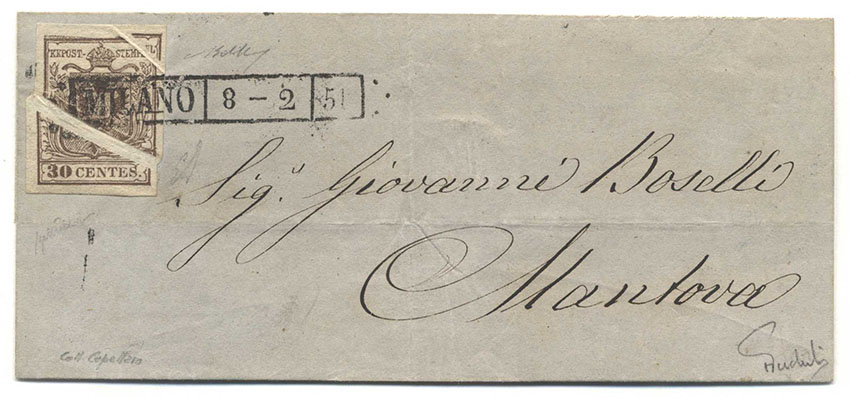 KKPOST-STEMPEL
MILANO 8-2 51
30 CENTES.
Sig.r Giovanni Boselli
Mantova
Coll. Capellaro